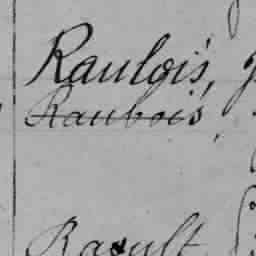 Raulois,
Raubois,
Raoult